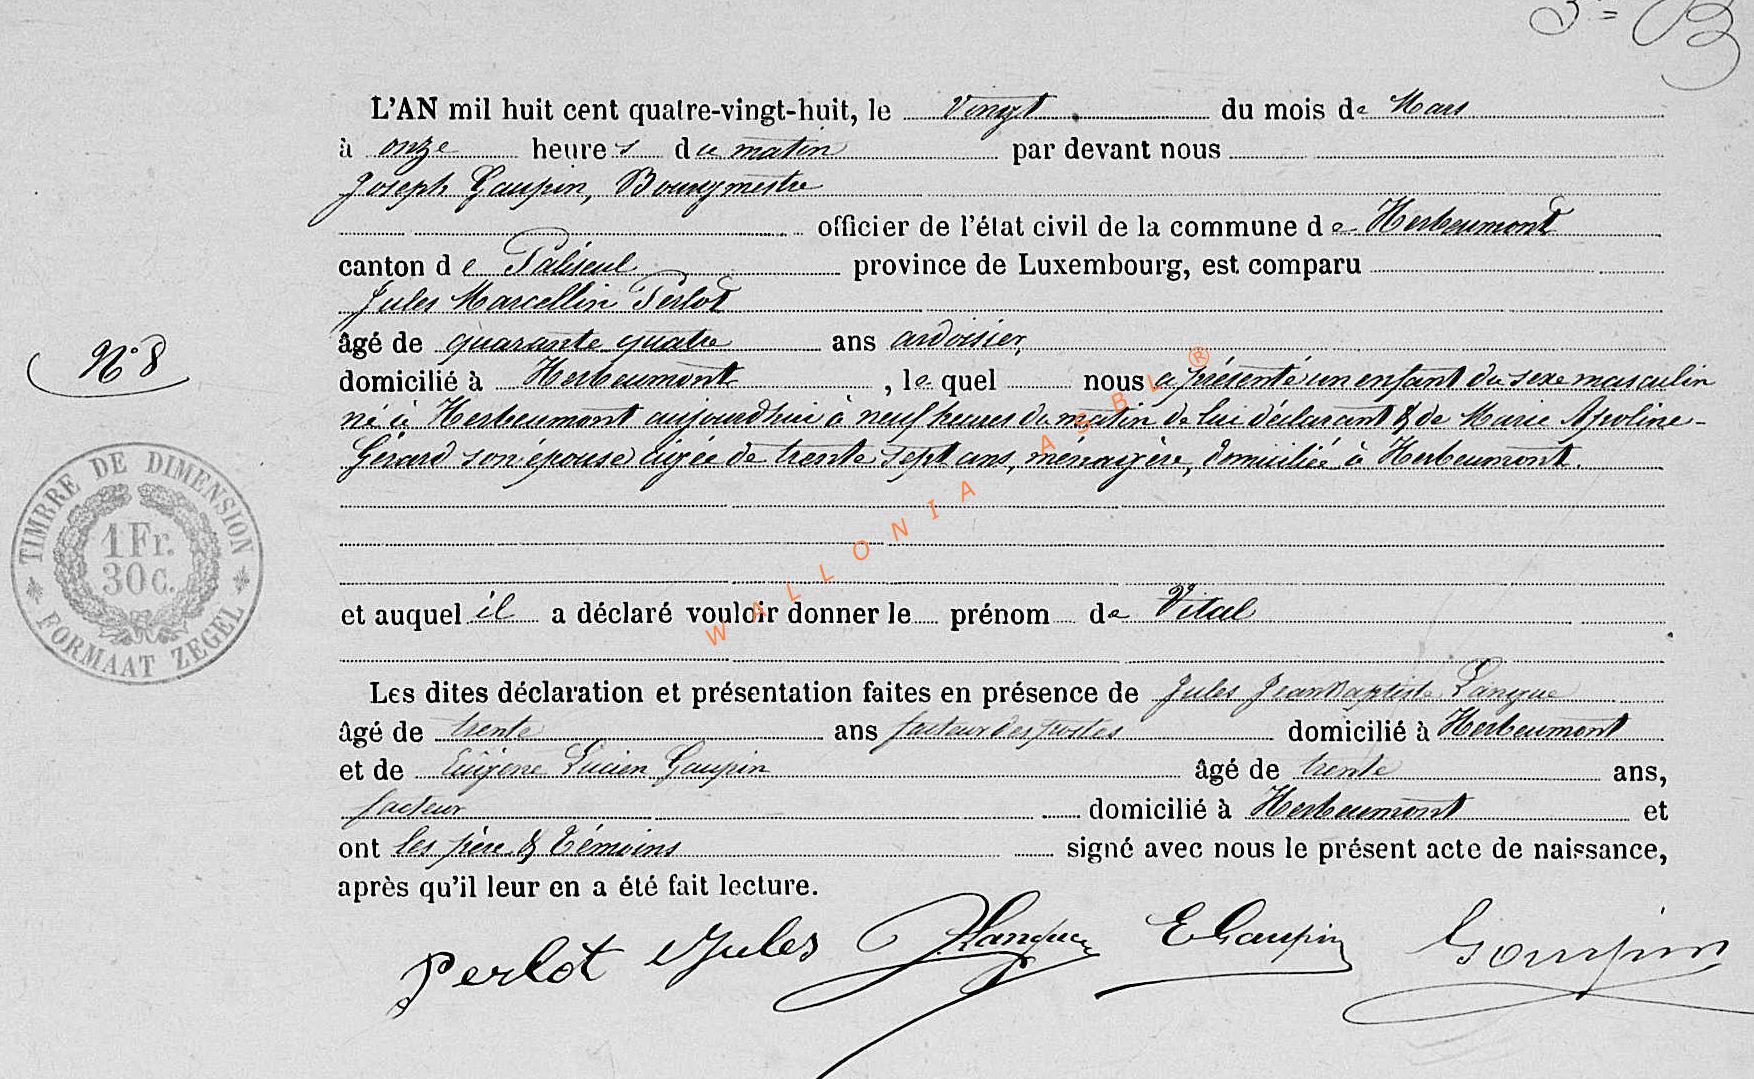 3e B
L'AN mil huit cent quatre-vingt-huit, le vingt du mois de Mars
à onze heures du matin par devant nous
Joseph Gaupin, Bourgmestre
officier de l'état civil de la commune de Herbeumont
canton de Paliseul province de Luxembourg, est comparu
Jules Marcellin Perlot
âgé de quarante quatre ans ardoisier,
domicilié à Herbeumont, le quel nous a présenté un enfant du sexe masculin
né à Herbeumont aujourdhui à neuf heures du matin de lui déclarant & de Marie Apoline
Gérard son épouse âgée de trente sept ans, ménagère, domiciliée à Herbeumont.
N° 8
TIMBRE DE DIMENSION
1 Fr.
30 c.
FORMAAT ZEGEL
et auquel il a déclaré vouloir donner le prénom de Vital
Les dites déclaration et présentation faites en présence de Jules Jean Baptiste Langue
âgé de trente ans facteur des postes domicilié à Herbeumont
et de Eugène Lucien Gaupin âgé de trente ans,
facteur domicilié à Herbeumont et
ont les père & témoins signé avec nous le présent acte de naissance,
après qu'il leur en a été fait lecture.
Perlot Jules JLangue EGaupin Gaupin
WALLONIA ASBL ®